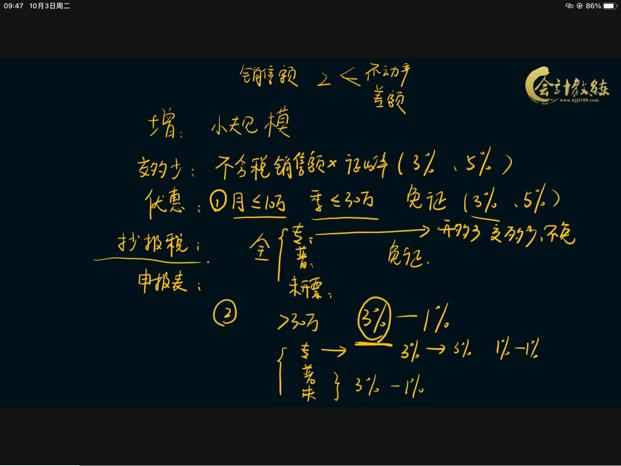 09:47 10月3日周二
86%
销售额 2 < 不动产
差额
会计教练
增: 小规模
交多少: 不含税销售额×征收率(3%、5%)
优惠: ①月≤10万 季≤30万 免征(3%、5%)
抄报税: 全 { 专: → 开多少交多少,不免
普: 免征.
申报表: 未开票:
② >30万 3%—1%
{ 专 → 3%→3% 1%—1%
普
未 } 3%—1%